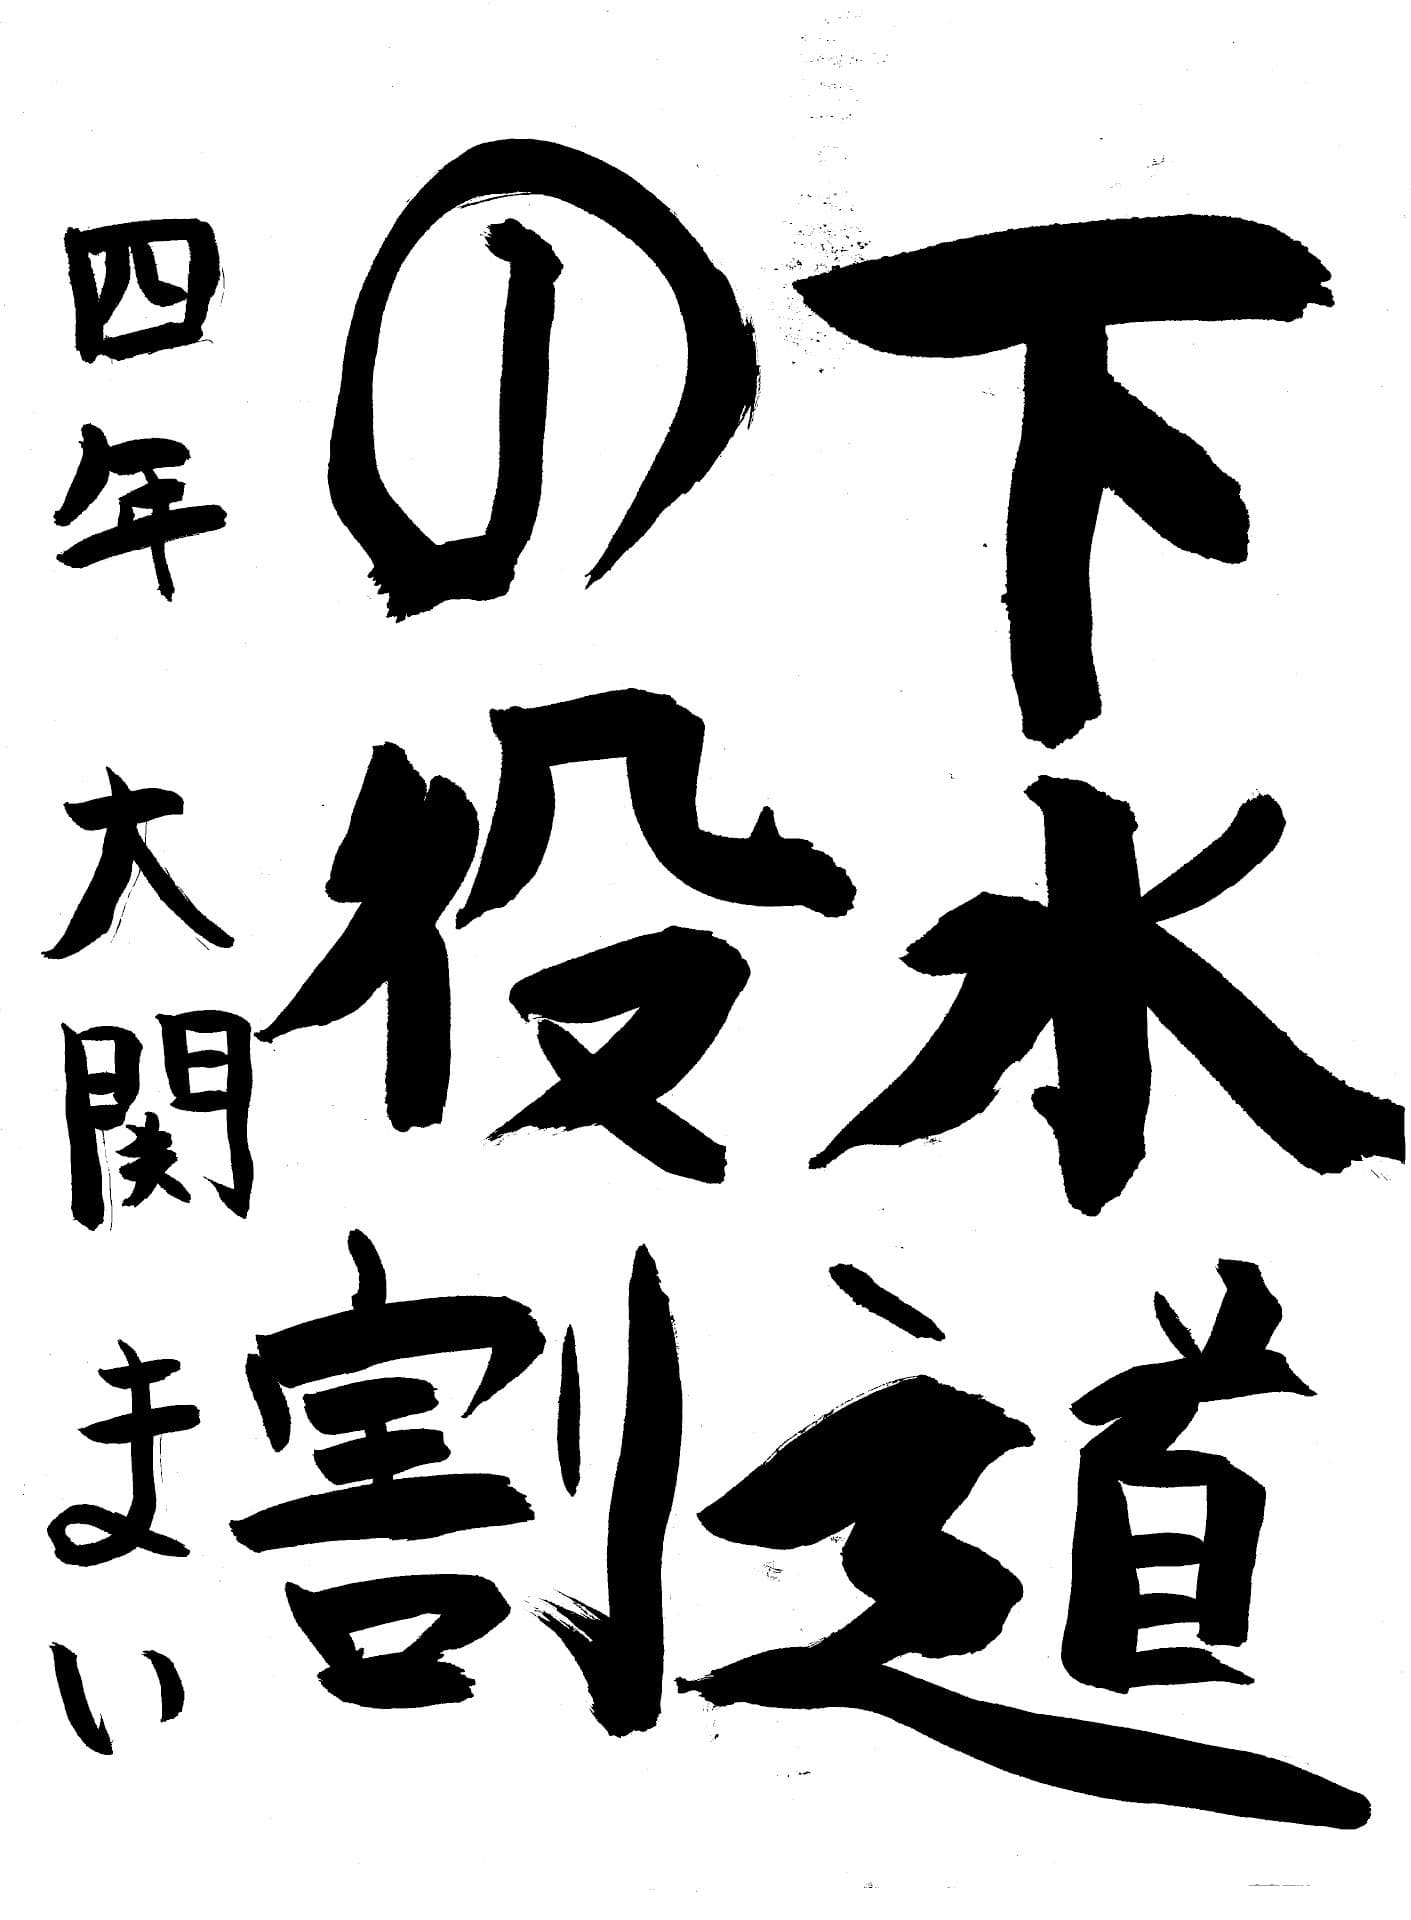 下水道
の役割
四年 大関 まい